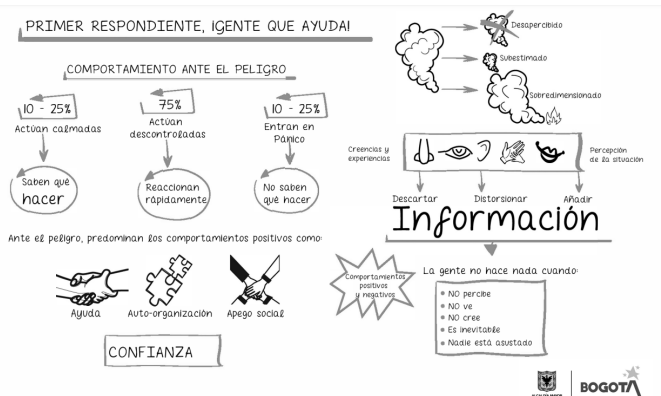 PRIMER RESPONDIENTE, ¡GENTE QUE AYUDA!
COMPORTAMIENTO ANTE EL PELIGRO
10 - 25%
Actúan calmadas
Saben qué
hacer
75%
Actúan
descontroladas
Reaccionan
rápidamente
10 - 25%
Entran en
Pánico
No saben
qué hacer
Ante el peligro, predominan los comportamientos positivos como:
Ayuda
Auto-organización
Apego social
CONFIANZA
Desapercibido
Subestimado
Sobredimensionado
Creencias y
experiencias
Percepción
de la situación
Descartar
Distorsionar
Añadir
Información
Comportamientos
positivos
y negativos
La gente no hace nada cuando:
NO percibe
NO ve
NO cree
Es inevitable
Nadie está asustado
BOGOTÁ